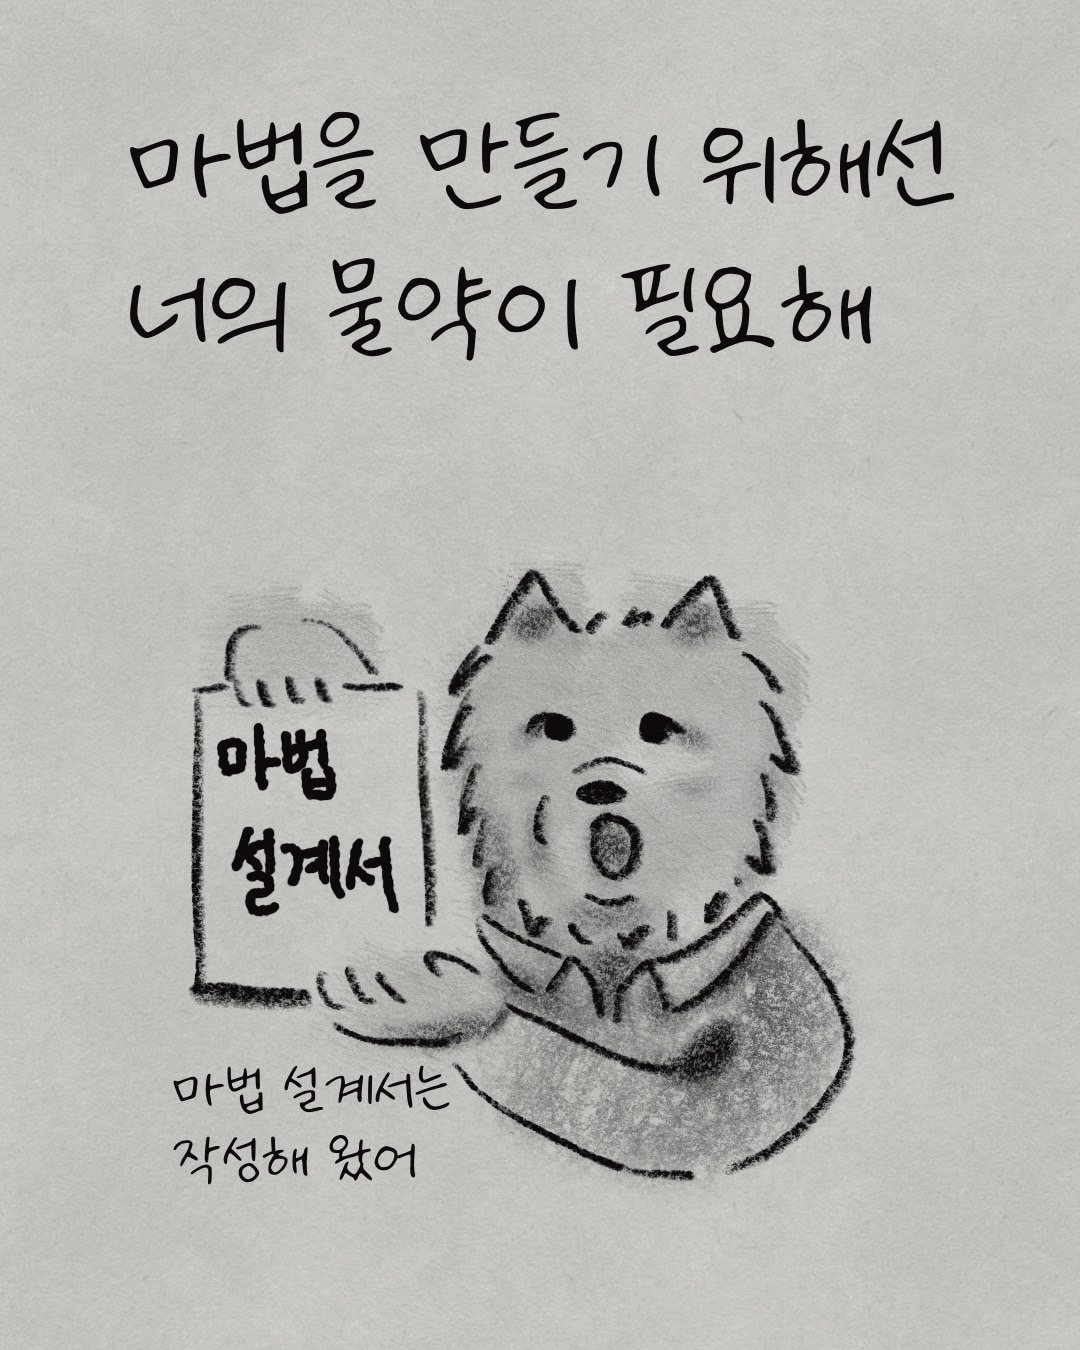 마법을 만들기 위해선
너의 물약이 필요해
마법
설계서
마법 설계서는
작성해 왔어